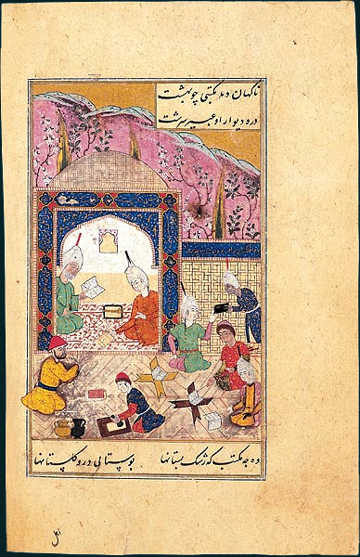 ناکهان دید مکتبی چو بهشت
در و دیوار او عبیر سرشت
وه چه مکتب که رشک بستانها بوستانی در و کلستانها